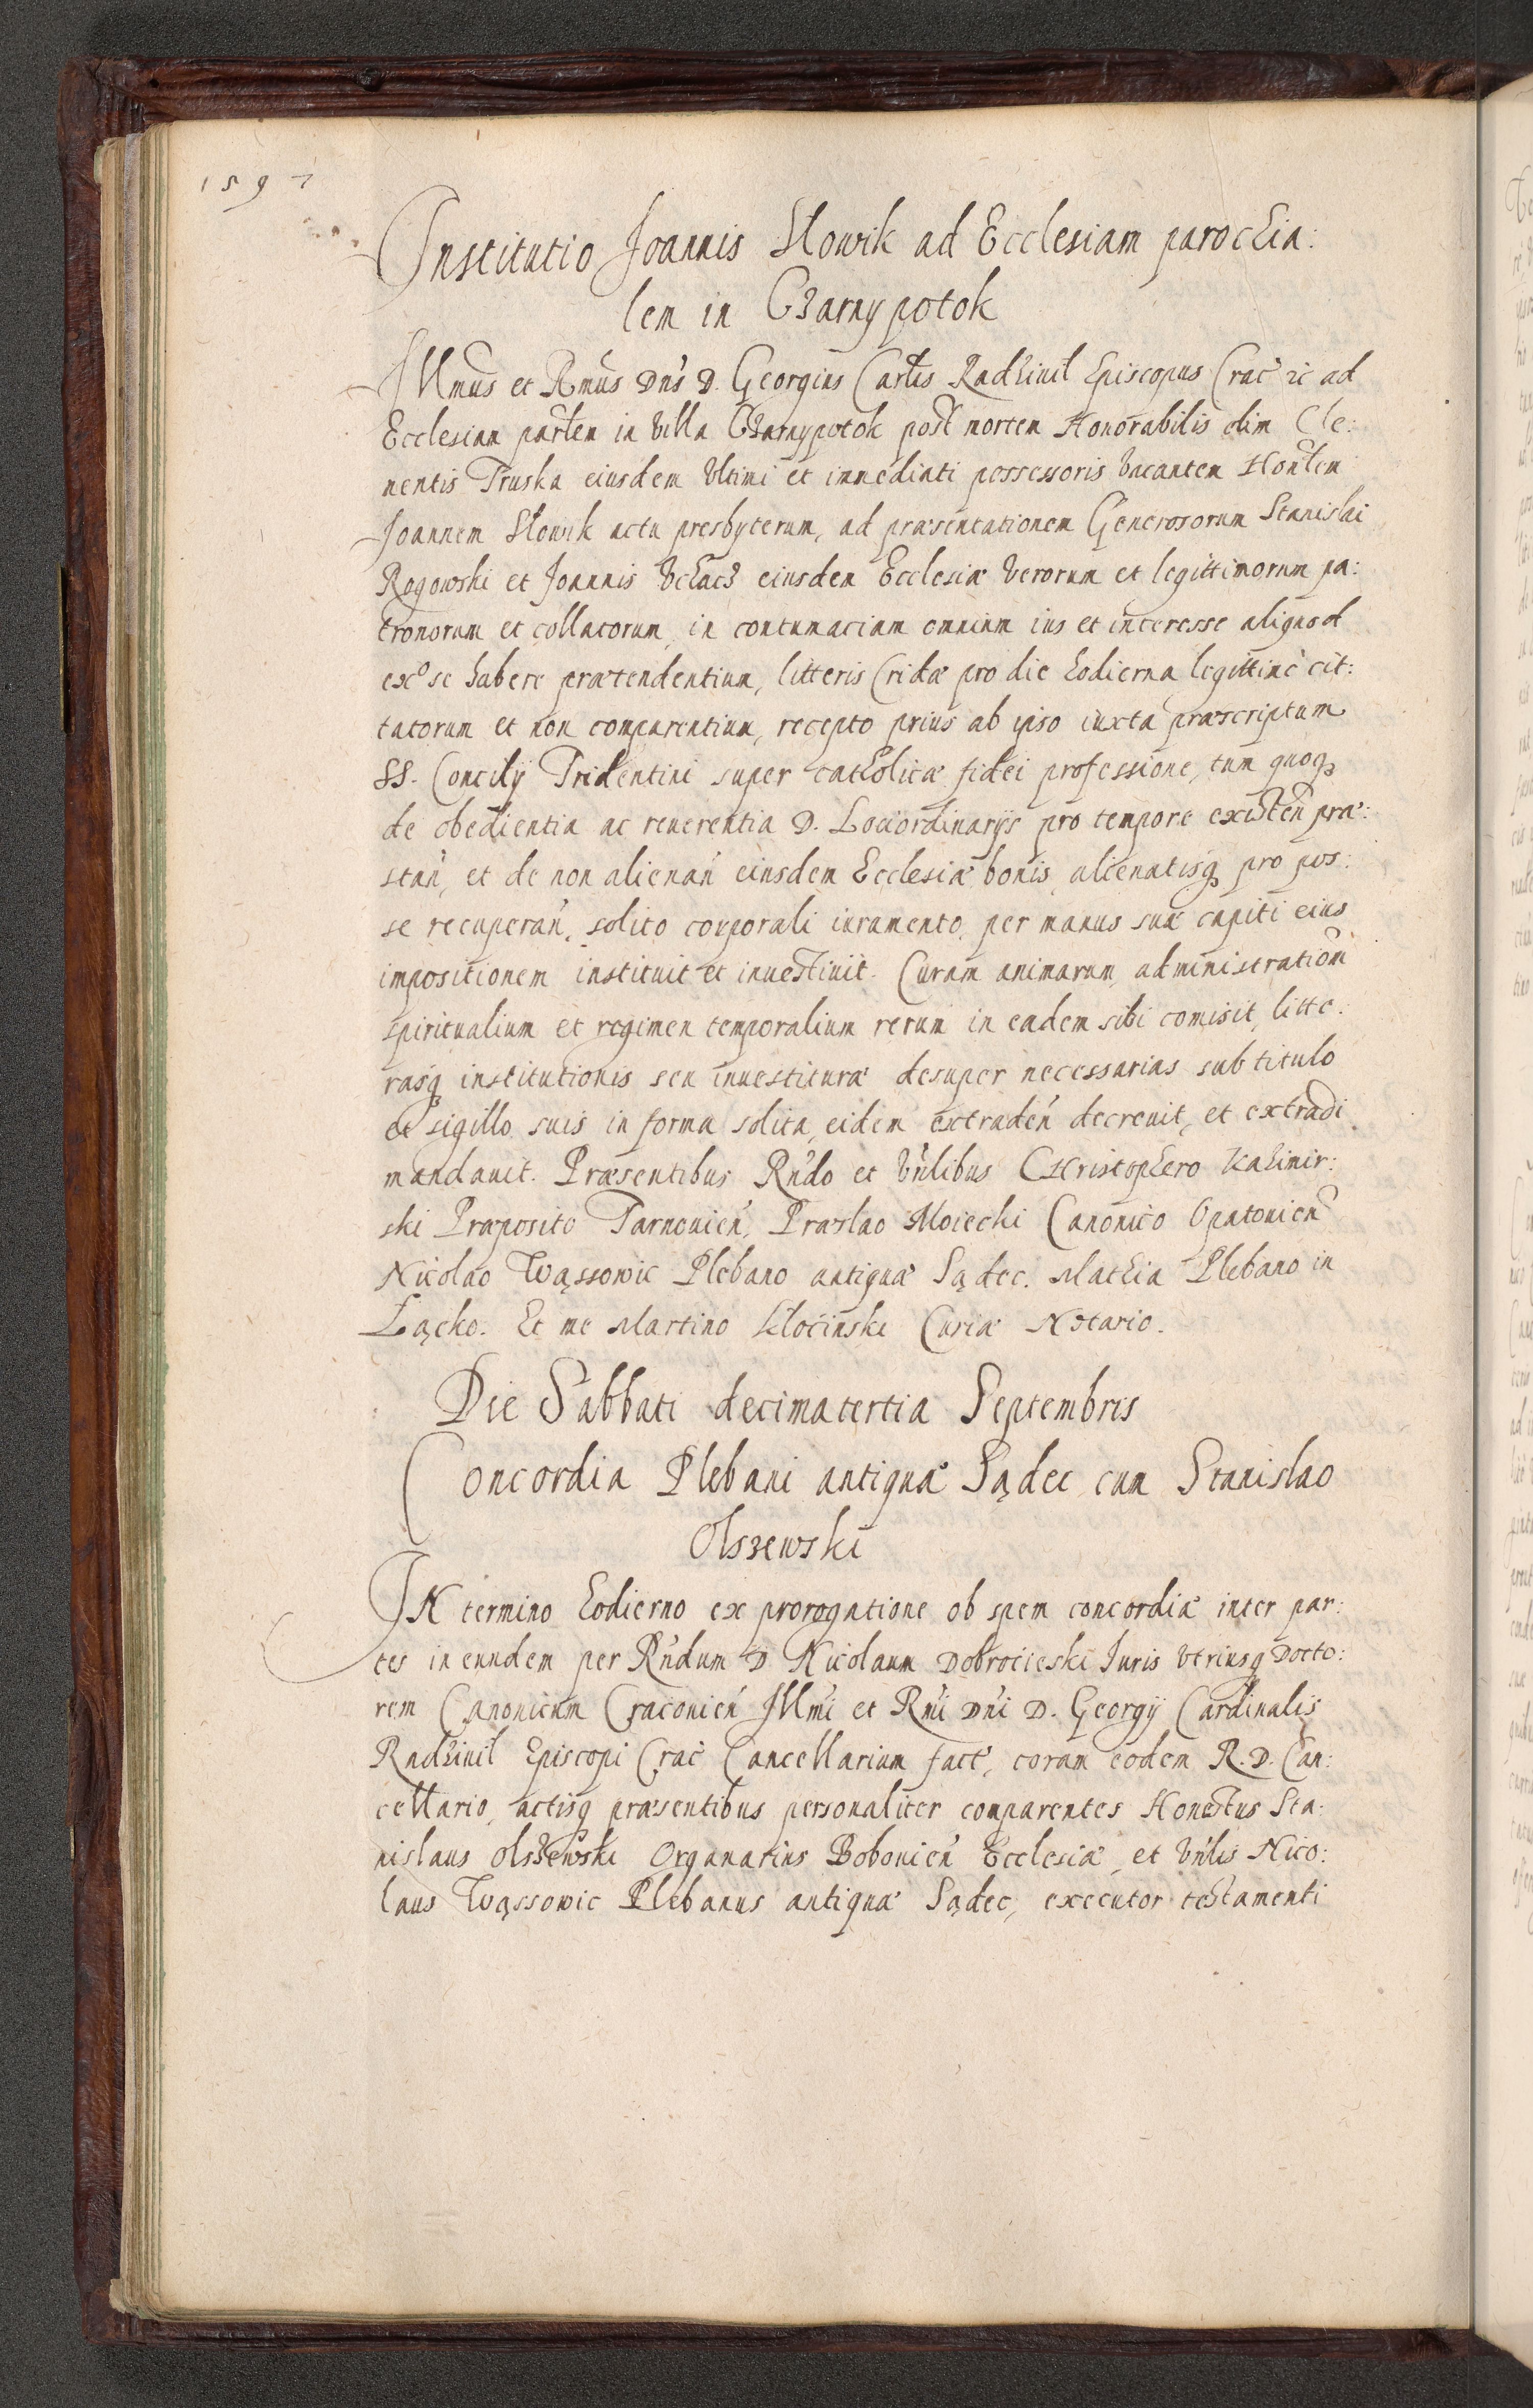 1597
Institutio Joannis Słowik ad Ecclesiam parochia:
lem in Czarnypotok
Illmus et Rmus Dns D. Georgius Carlis Radziuił Episcopus Crac̃ ꝛc ad
Ecclesiam parlem in villa Czarnypotok post mortem Honorabilis olim Cle:
mentis Truska eiusdem vltimi et immediati possessoris vacantem Honlem
Joannem Słowik actu presbyterum, ad præsentationem Generosorum Stanislai
Rogowski et Joannis vchacz eiusdem Ecclesiæ verorum et legittimorum pa:
tronorum et collatorum, in contumaciam omnium ius et interesse aliquod
ex° se habere prætendentium, litteris Cridæ pro die hodierna legittimè cit:
tatorum et non comparentium, recepto prius ab ipso iuxta præscriptum
SS. Concilij Tridentini super catholicæ fidei professione, tum quoqꝫ
de obedientia ac reuerentia D. Lociordinarijs pro tempore existeñ præ:
stañ, et de non alienañ eiusdem Ecclesiæ bonis, alienatisqꝫ pro pos:
se recuperañ, solito corporali iuramento, per manus suæ capiti eius
impositionem instituit et inuestiuit. Curam animarum, administratioñ
spiritualium et regimen temporalium rerum in eadem sibi comisit, litte:
rasqꝫ institutionis seu inuestituræ desuper necessarias sub titulo
et sigillo suis in forma solita, eidem extradeñ decreuit, et extradi
mandauit. Præsentibus Rñdo et Vñlibus CHristophero Kazimir:
ski Præposito Tarnouieñ, Præslao Moiecki Canonico Opatouieñ
Nicolao Wąssowic Plebano antiquæ Sądec. Mathia Plebano in
Łącko. Et me Martino Kłocinski Curiæ Notario.
Die Sabbati decimatertia Septembris
Concordia Plebani antiquæ Sądec cum Stanislao
Olszewski
IN termino hodierno ex prorogatione ob spem concordiæ inter par:
tes in eundem per Rñdum D. Nicolaum Dobrocieski Juris vtriusqꝫ Docto:
rem Canonicum Cracouieñ Illmi et Rmi Dñi D. Georgij Cardinalis
Radziuił Episcopi Crac̃ Cancellarium fact, coram eodem R. D. Can:
cellario, actisqꝫ præsentibus personaliter comparentes Honestus Sta:
nislaus Olszewski Organarius Bobouieñ Ecclesiæ, et Vñlis Nico:
laus Wąssowic Plebanus antiquæ Sądec, executor testamenti